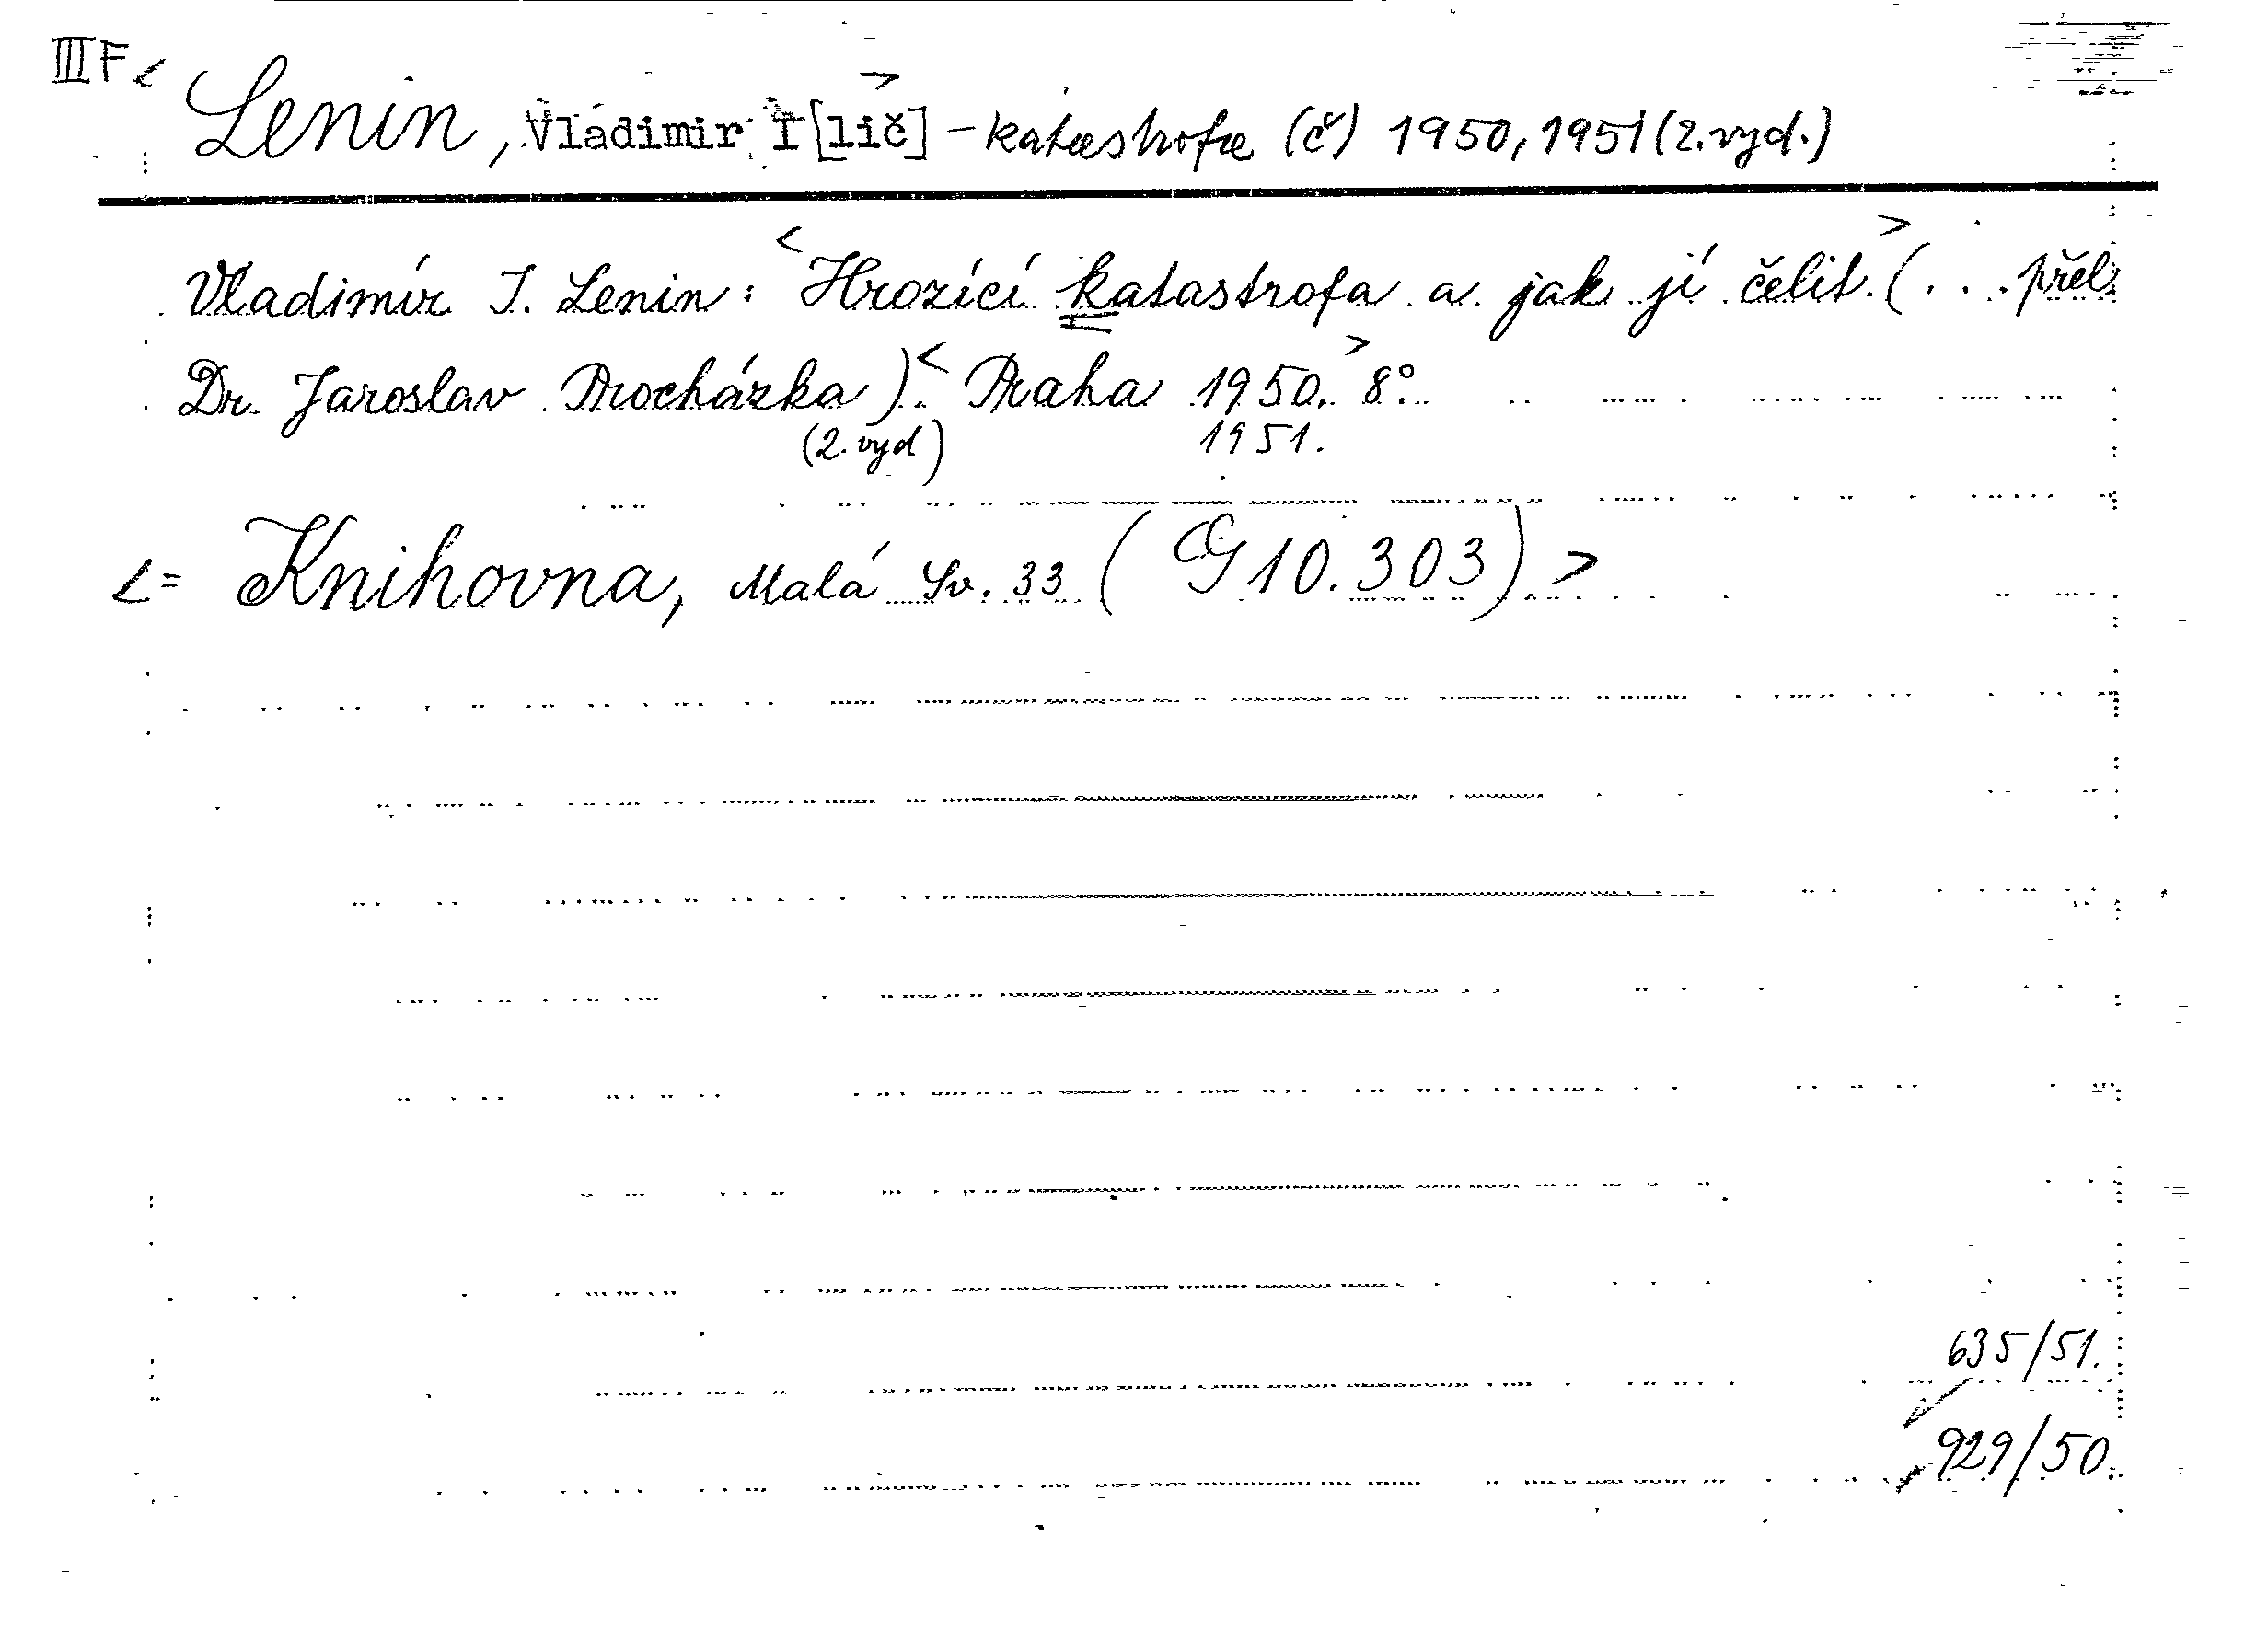 III F < Lenin, Vladimir I[lič] > - katastrofa (č) 1950, 1951 (2. vyd.)
Vladimír I. Lenin: < Hrozící katastrofa a jak jí čelit. > (. . . přel.
Dr. Jaroslav Procházka). < Praha 1950. > 8°.
(2. vyd) 1951.
< = Knihovna, Malá Sv. 33 (G 10.303) >
635/51.
929/50.